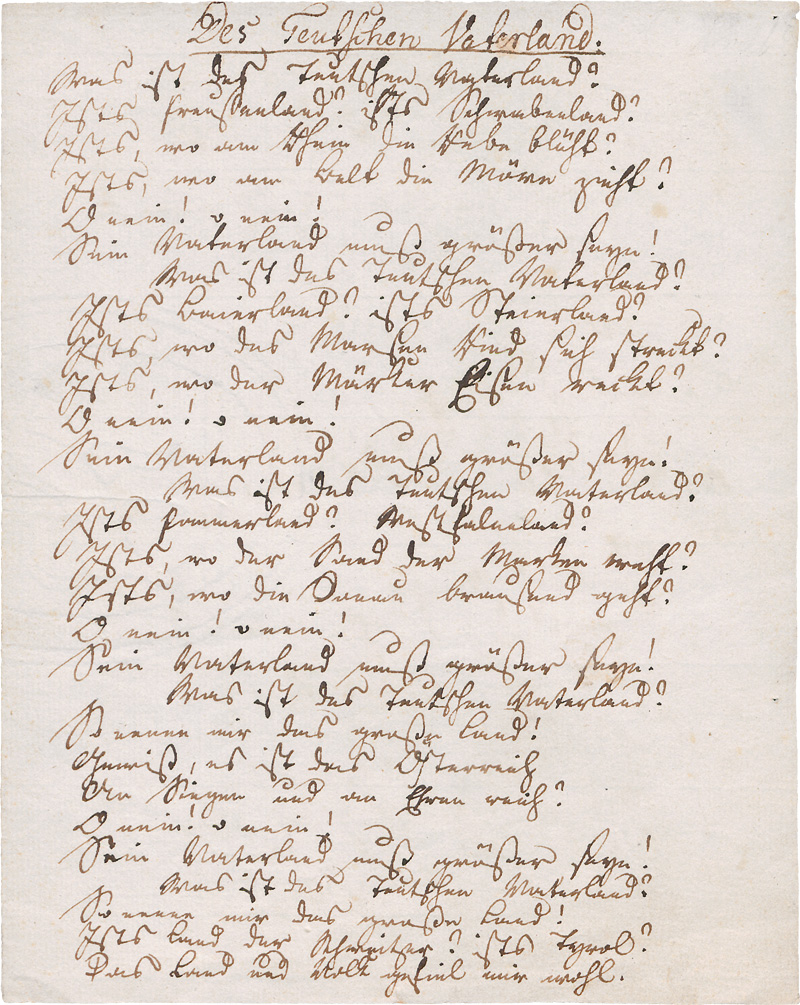 Des Teutschen Vaterland.
Was ist des Teutschen Vaterland?
Ists Preußenland? ists Schwabenland?
Ists, wo am Rhein die Rebe blüht?
Ists, wo am Belt die Möve zieht?
O nein! o nein!
Sein Vaterland muß größer seyn!
Was ist des Teutschen Vaterland?
Ists Baierland? ists Steierland?
Ists, wo des Marsen Rind sich streckt?
Ists, wo der Märker Eisen reckt?
O nein! o nein!
Sein Vaterland muß größer seyn!
Was ist des Teutschen Vaterland?
Ists Pommerland? Westfalenland?
Ists, wo der Sand der Marken weht?
Ists, wo die Donau brausend geht?
O nein! o nein!
Sein Vaterland muß größer seyn!
Was ist des Teutschen Vaterland?
So nenne mir das große Land!
Gewiß, es ist das Österreich
An Siegen und an Ehren reich?
O nein! o nein!
Sein Vaterland muß größer seyn!
Was ist des Teutschen Vaterland?
So nenne mir das große Land!
Ists Land der Schweitzer? ists Tyrol?
Das Land und Volk gefiel mir wohl.